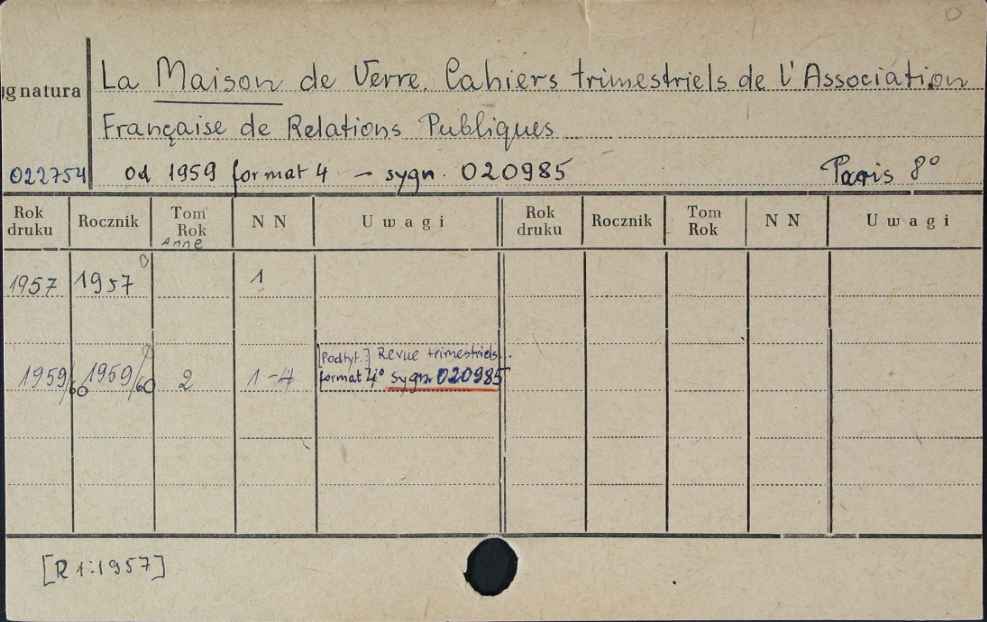 La Maison de Verre. Cahiers trimestriels de l'Association
ignatura
Française de Relations Publiques
022754 od 1959 format 4 – sygn. 020985 Paris 8°
Rok druku Rocznik Tom Rok N N Uwagi Rok druku Rocznik Tom Rok N N Uwagi
Anne
1957 1957 1
[Podtyt.] Revue trimestriels.
1959/60 1959/60 2 1-4 format 4° sygn. 020985
[R 1:1957]